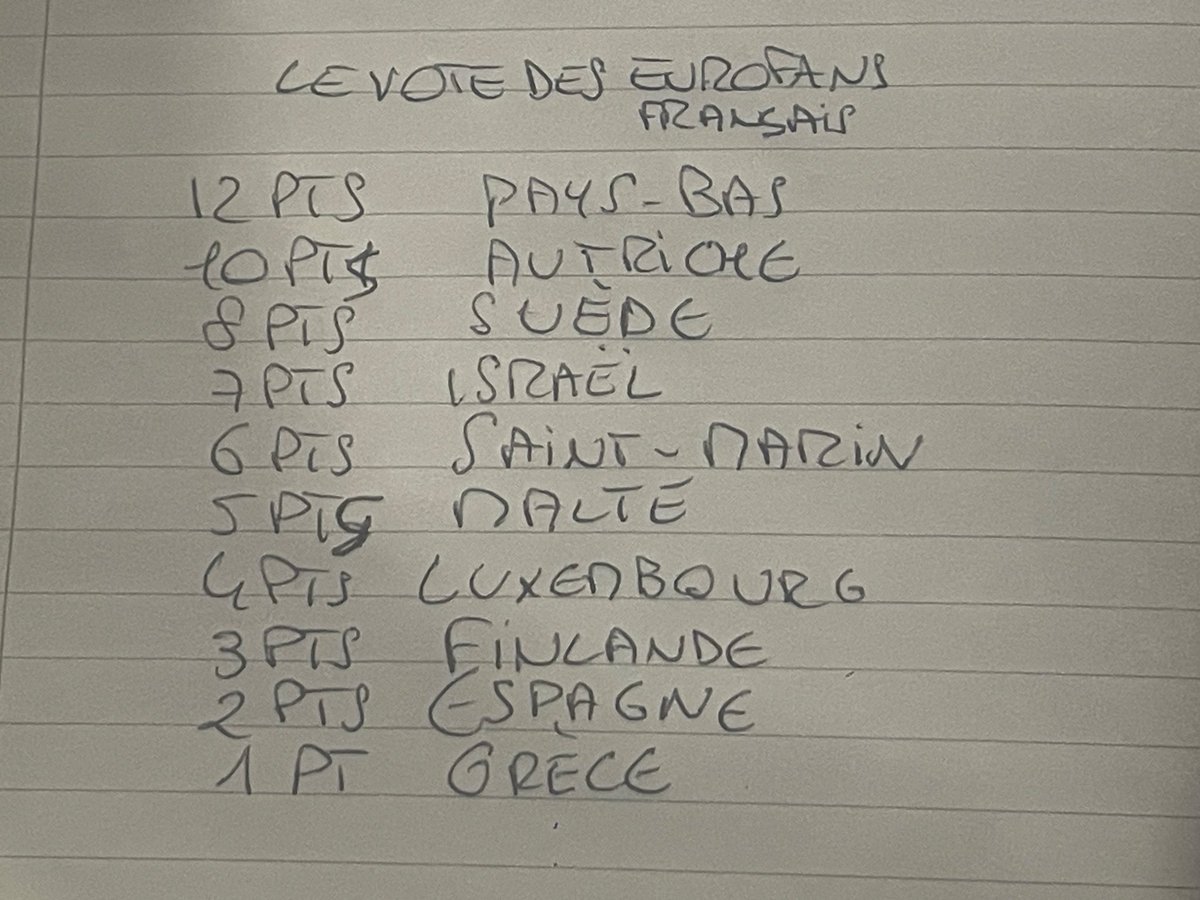 LE VOTE DES EUROFANS
FRANÇAIS
12 PTS PAYS-BAS
10 PTS AUTRICHE
8 PTS SUÈDE
7 PTS ISRAËL
6 PTS SAINT-MARIN
5 PTS MALTE
4 PTS LUXEMBOURG
3 PTS FINLANDE
2 PTS ESPAGNE
1 PT GRÈCE